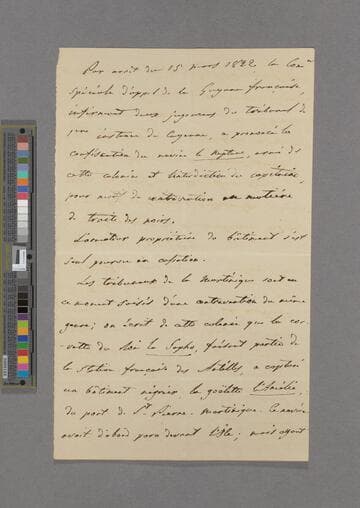 Par arrêt du 15 mars 1822 la Cour
spéciale d'appel de la Guyane française,
infirmant deux jugemens du tribunal de
1ere instance de Cayenne, a prononcé la
confiscation du navire le Neptune, armé de
cette colonie et l'interdiction du capitaine,
pour motif de contravention en matière
de traite des noirs.
L'armateur propriétaire du bâtiment s'est
seul pourvu en cassation.
Les tribunaux de la Martinique sont en
ce moment saisis d'une contravention du même
genre; on écrit de cette colonie que la cor-
vette du Roi la Sapho, faisant partie de
la station française des Antilles, a capturé
un bâtiment négrier, la goëlette l'Amélie,
du port de St. Pierre Martinique. Ce navire
avait d'abord paru devant l'Isle; mais ayant